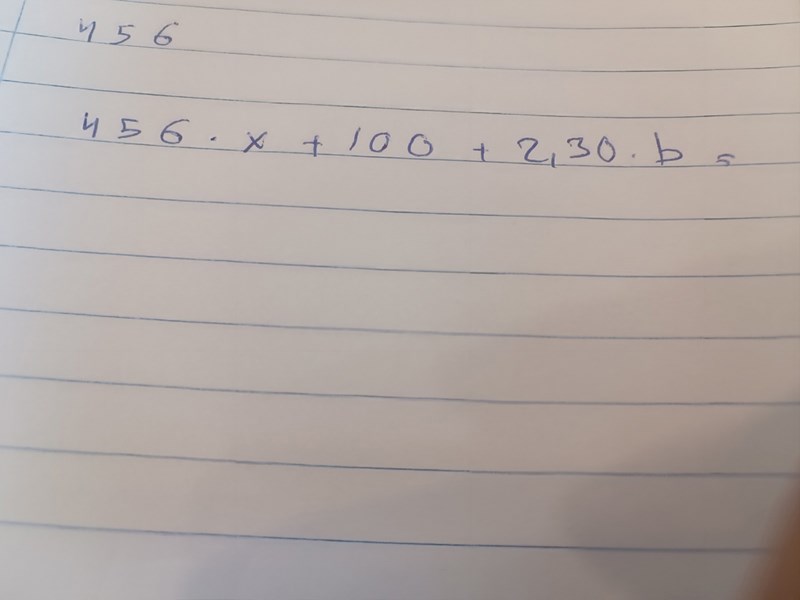 456
456 · x + 100 + 2,30 · b =